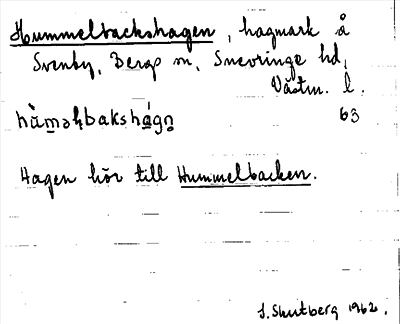 Hummelbackshagen, hagmark å
Svenby, Bergs sn, Snevringe hd,
Västm. l.
63
Hagen hör till Hummelbacken.
1962.